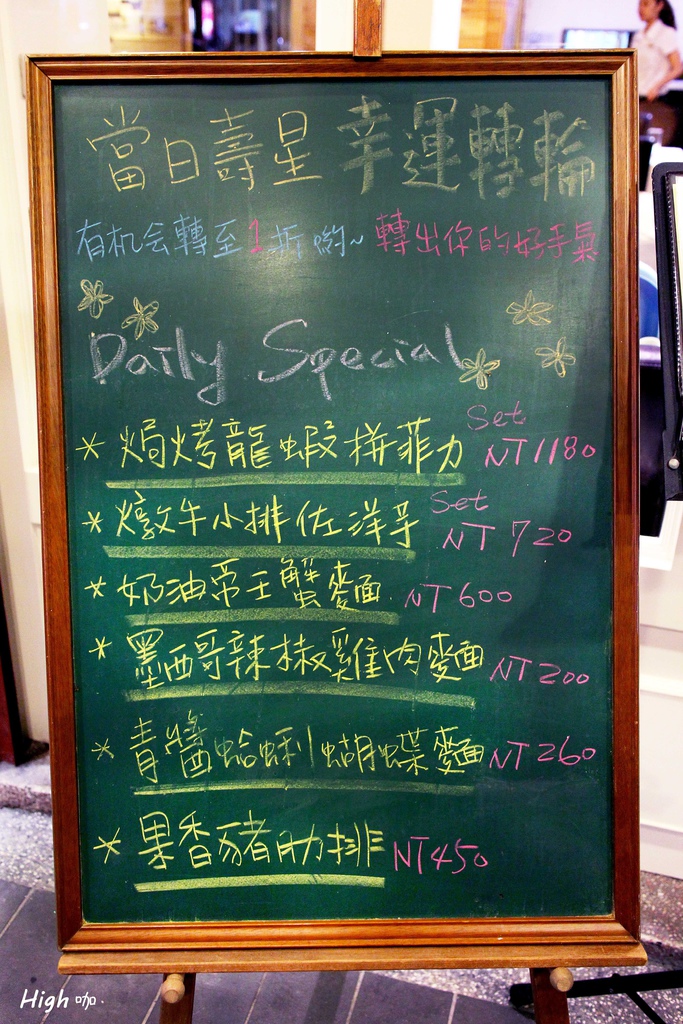 當日壽星 幸運轉輪
有机会轉至1折喲~ 轉出你的好手氣
Daily Special
* 焗烤龍蝦拼菲力 Set NT1180
* 燉牛小排佐洋芋 Set NT 720
* 奶油帝王蟹麵 NT600
* 墨西哥辣椒雞肉麵 NT200
* 青醬蛤蜊蝴蝶麵 NT260
* 果香豬肋排 NT450
High 咖.